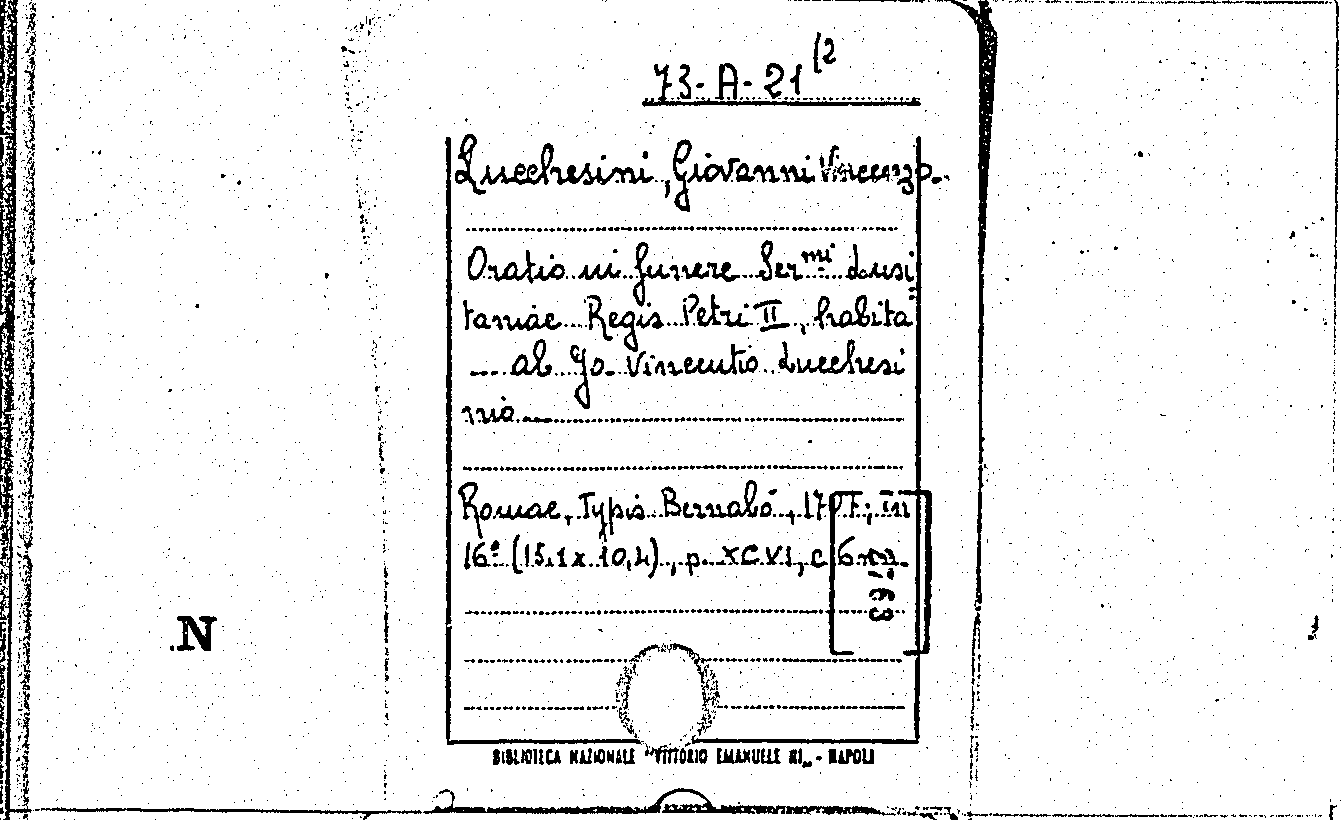 73-A-21 (2
Lucchesini, Giovanni Vincenzo.
Oratio in funere Ser.mi Lusi
taniae Regis Petri II, habita
... ab Jo. Vincentio Lucchesi
nio...
Romae, Typis Bernabò, 1707; in
16º (15,1 x 10,4), p. XCVI, c
N
BIBLIOTECA NAZIONALE "VITTORIO EMANUELE III" - NAPOLI